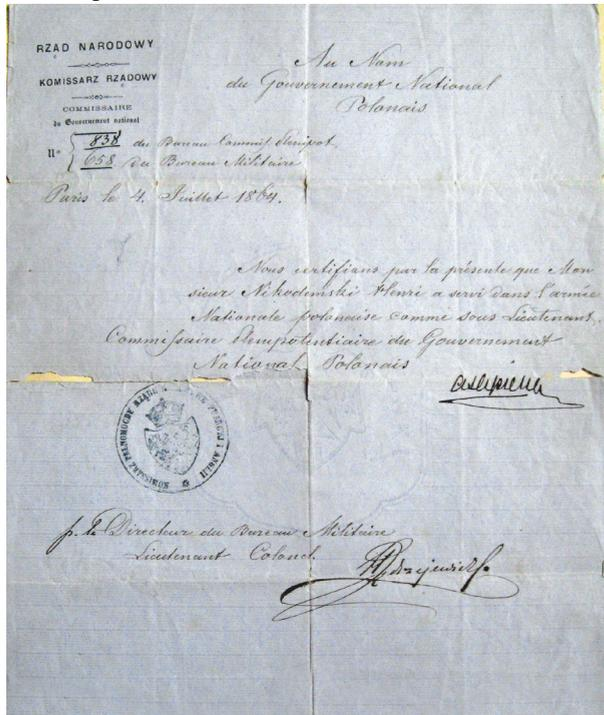 RZĄD NARODOWY
KOMISSARZ RZĄDOWY
COMMISSAIRE
du Gouvernement national
Au Nom
du Gouvernement National
Polonais
No 838 du Bureau Commiss Plenipot.
658 du Bureau Militaire
Paris le 4. Juillet 1864.
Nous certifions par la présente que Mon
sieur Nikodemski Henri a servi dans l'armée
Nationale polonaise comme sous Lieutenant.
Commissaire Plenipotentiaire du Gouvernement
National Polonais
KOMMISSARZ PEŁNOMOCNY RZĄDU FRANCYI I ANGLII
p. le Directeur du Bureau Militaire
Lieutenant Colonel